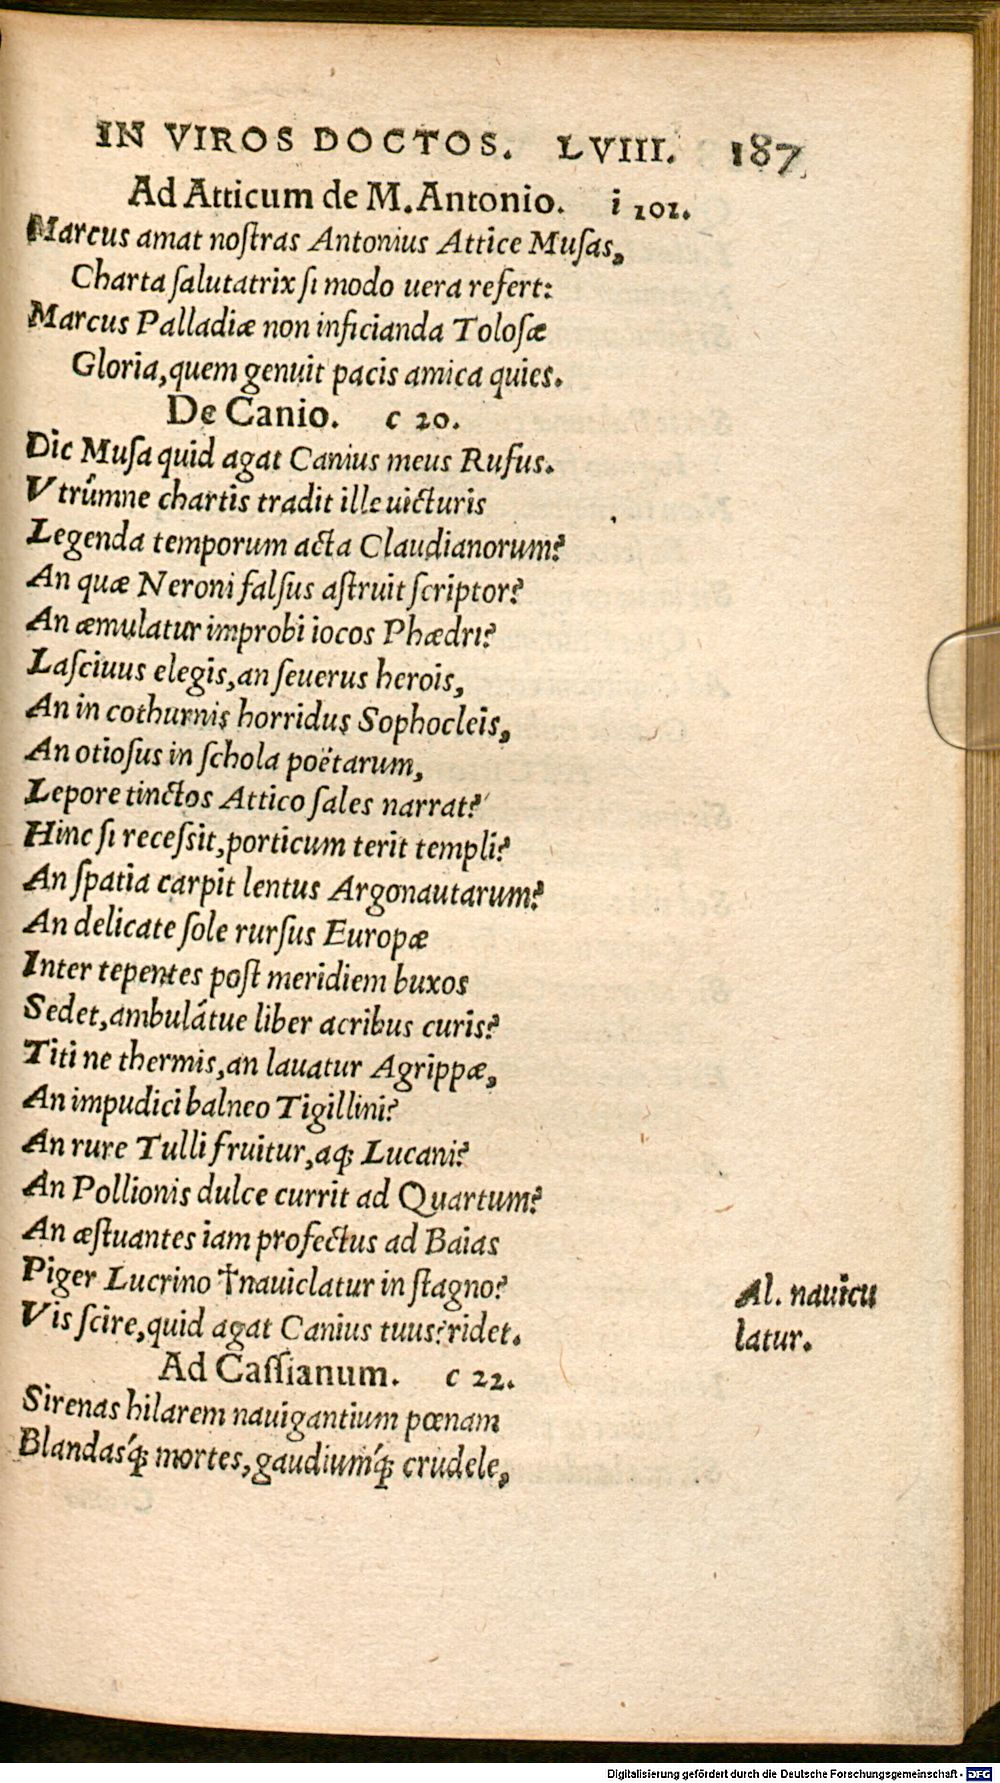 IN VIROS DOCTOS. LVIII. 187
Ad Atticum de M. Antonio. i 101.
Marcus amat noſtras Antonius Attice Muſas,
Charta ſalutatrix ſi modo uera refert:
Marcus Palladiæ non inficianda Toloſæ
Gloria, quem genuit pacis amica quies.
De Canio. c 20.
Dic Muſa quid agat Canius meus Rufus.
Vtrûmne chartis tradit ille uicturis
Legenda temporum acta Claudianorum?
An quæ Neroni falſus aſtruit ſcriptor?
An æmulatur improbi iocos Phædri?
Laſciuus elegis, an ſeuerus herois,
An in cothurnis horridus Sophocleis,
An otioſus in ſchola poëtarum,
Lepore tinctos Attico ſales narrat?
Hinc ſi receſsit, porticum terit templi?
An ſpatia carpit lentus Argonautarum?
An delicate ſole rurſus Europæ
Inter tepentes poſt meridiem buxos
Sedet, ambulátue liber acribus curis?
Titi ne thermis, an lauatur Agrippæ,
An impudici balneo Tigillini?
An rure Tulli fruitur, aq́; Lucani?
An Pollionis dulce currit ad Quartum?
An æſtuantes iam profectus ad Baias
Piger Lucrino †nauiclatur in ſtagno?
Al. nauicu
latur.
Vis ſcire, quid agat Canius tuus? ridet.
Ad Caſſianum. c 22.
Sirenas hilarem nauigantium pœnam
Blandasq́; mortes, gaudiumq́; crudele,
Digitalisierung gefördert durch die Deutsche Forschungsgemeinschaft - DFG